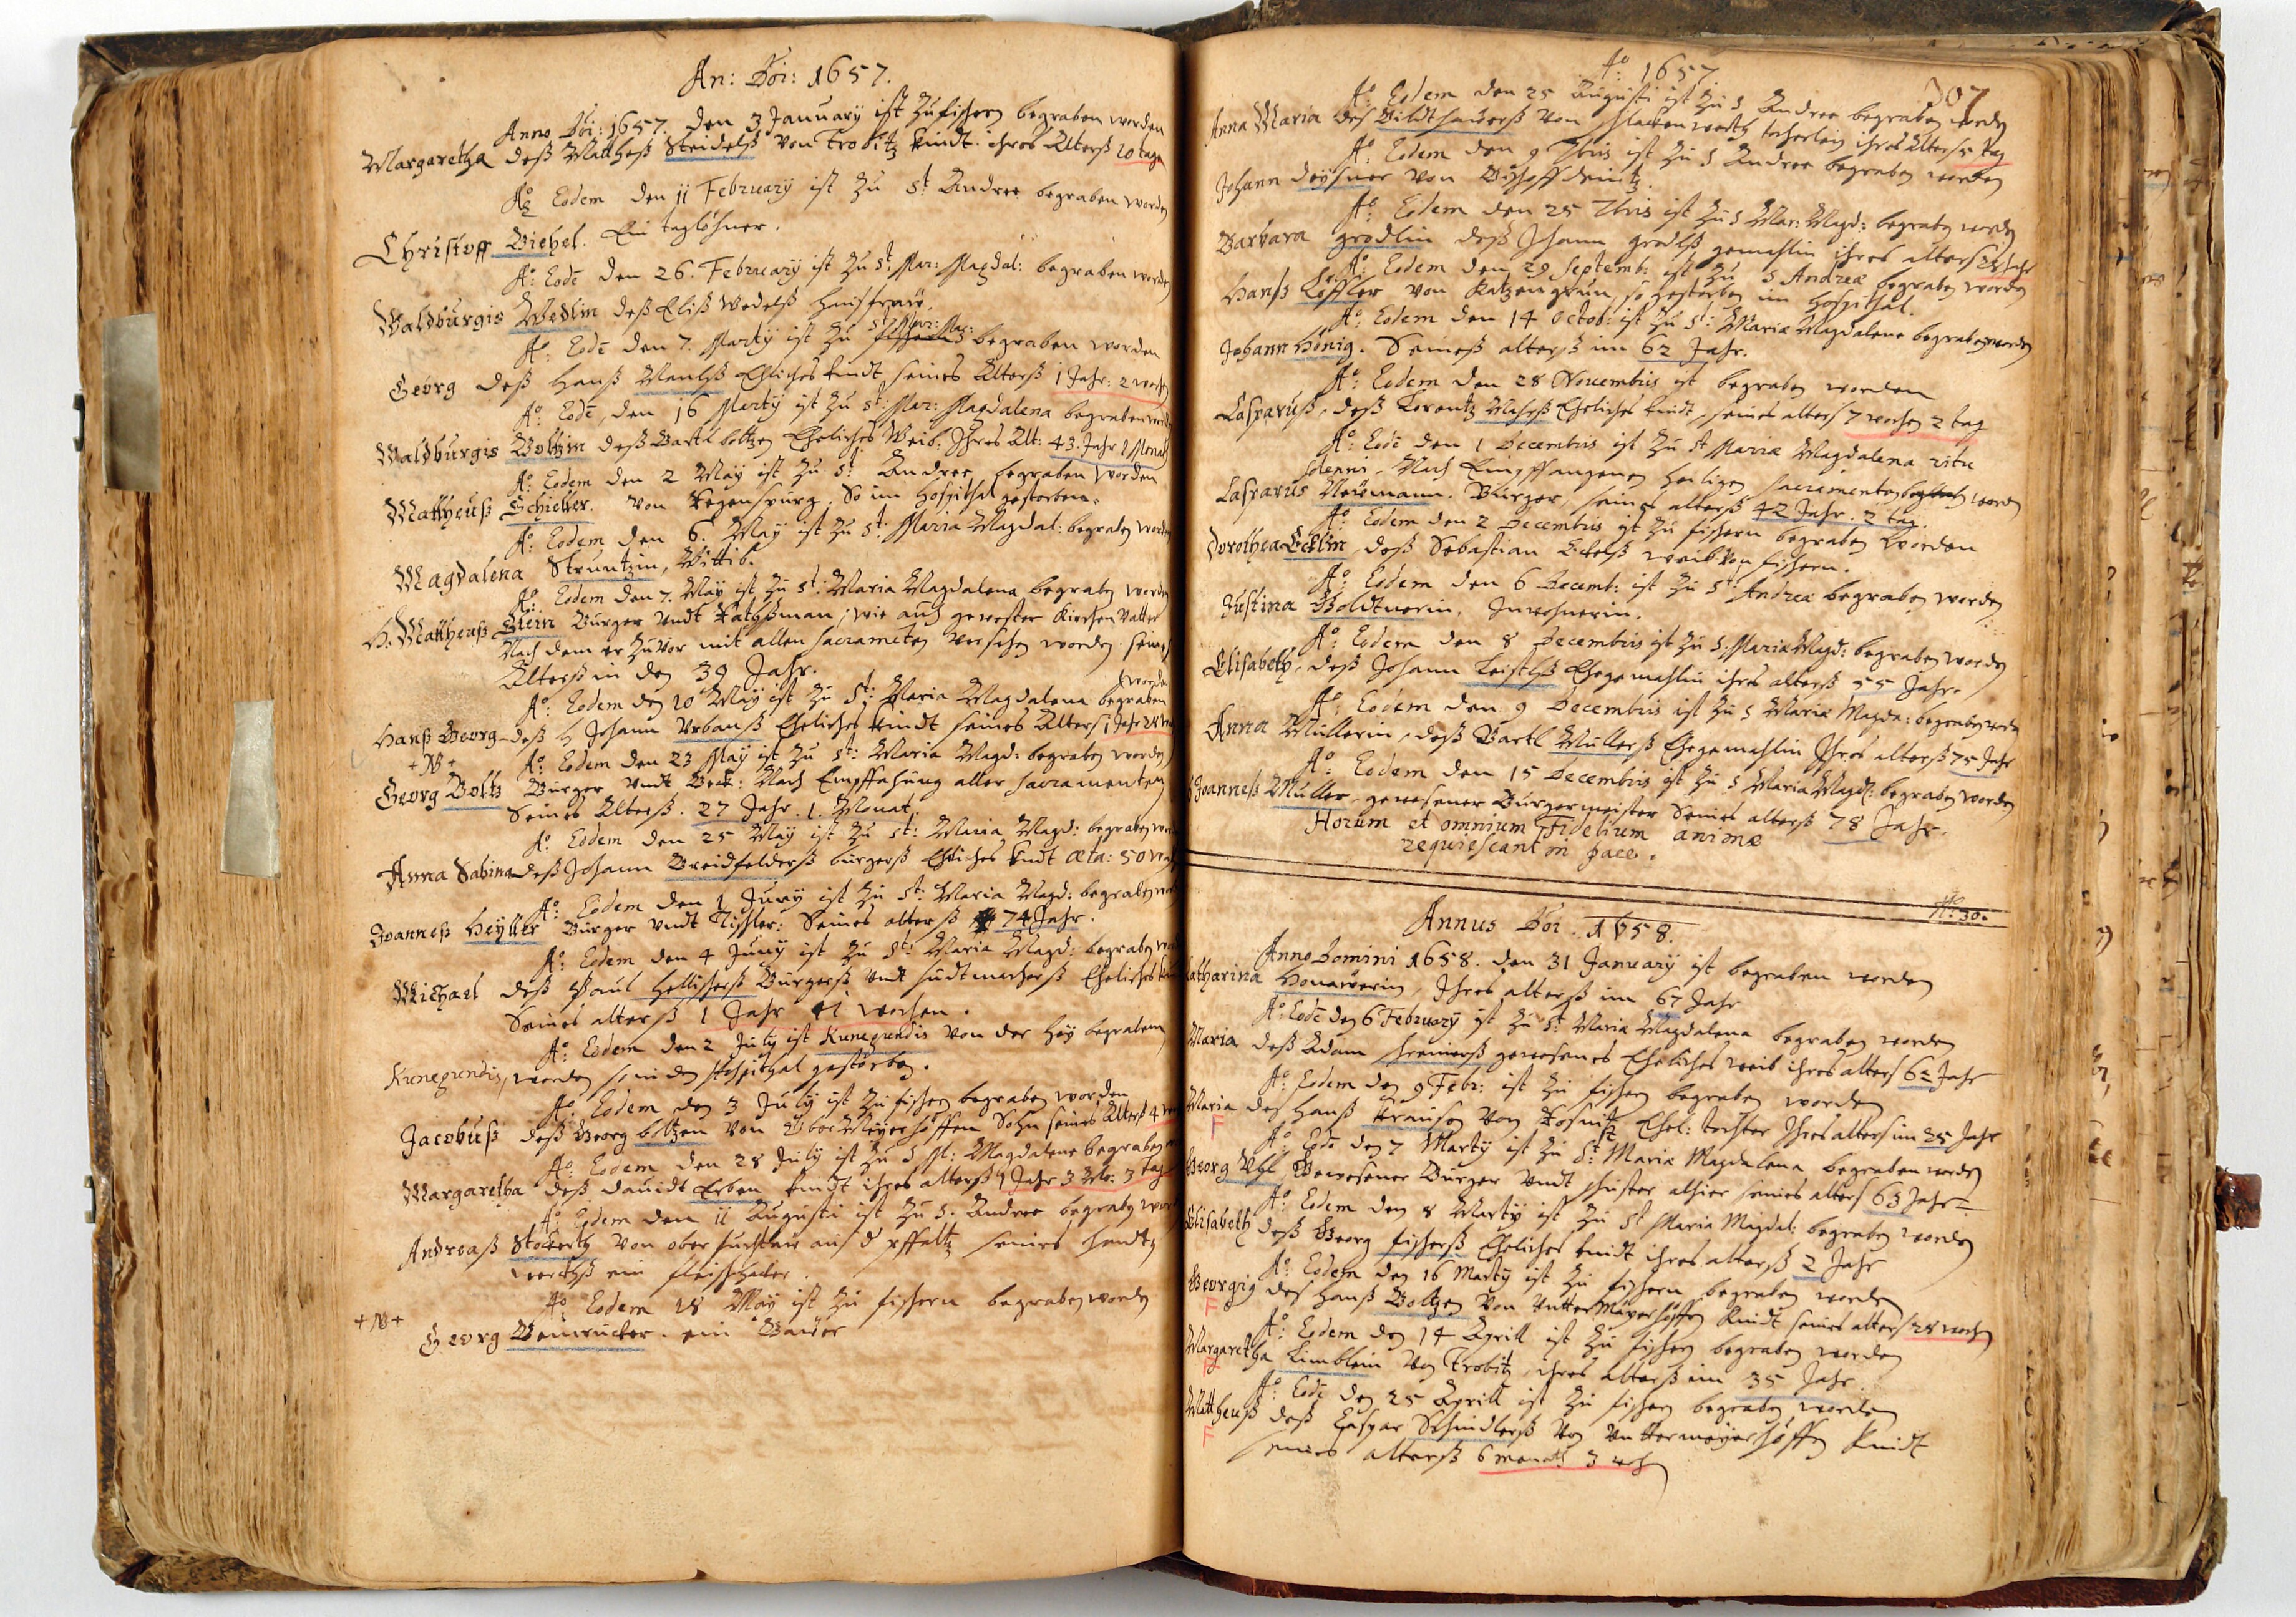 An: Doi: 1657.
Anno Doi: 1657. den 3 January ist zu fischern begraben worden
Margaretha deß Matthesß Steidelß von Trobitz kindt. ihres Alterß 20 tage
Ao Eodem den 11 February ist zu St Andree begraben worden
Christoff Biehel. Ein taglöhner.
Ao: Eodē den 26. February ist zu St: Mar: Magdal: begraben worden
Waldburgis Wedlin deß Eliß Wedelß haußfraw.
St Mar: Mag:
Ao: Eodē den 7. Marty ist zu fischern begraben worden
Georg deß Hanß Ehliches kindt seines Alterß 1 Jahr: 2 wochen
Ao: Eodē, den 16 Marty ist zu St: Mar: Magdalena begraben worden
Waldburgis Boltzin deß Bartl boltzen Eheliches Weib. Ihres Alt: 43. Jahr Monat
Ao: Eodem den 2 May ist zu St Andree begraben worden
Mattheuß Schieller. von Regenspurg. So im Hospithal gestorben.
Ao: Eodem den 6. May ist zu St: Maria Magdal: begraben worden
Magdalena Struntzin, Wittib.
Ao: Eodem den 7. May ist zu St: Maria Magdalena begraben worden
H: Mattheuß Stein Burger undt Rathßman, wie auch gewester Kirchen Vatter
Nach dem er zuvor mit allen Sacramenten versehen worden. seines
Alterß in den 39 Jahr.
worden
Ao: Eodem den 20 May ist zu St: Maria Magdalena begraben
Hanß Georg deß H Johann Urbanß Eheliches kindt seines Alterß 1 Jahr
+ NB +
Ao: Eodem den 23 May ist zu St: Maria Magd: begraben worden
Georg Boltz Burger undt Beck: Nach Empffahung aller Sacramenten
Seines Alterß. 27 Jahr. 1. Monat
Ao: Eodem den 25 May ist zu St: Maria Magd: begraben worden
Anna Sabina deß Johann Breidfelderß burgerß Ehliches kindt æta: 50
Ao: Eodem den 1 Juny ist zu St: Maria Magd: begraben
Joanneß Heyller Burger undt Tischler: Seines alterß 74 Jahr.
Ao: Eodem den 4 Juny ist zu St: Maria Magd: begraben
Michael deß Paul Hellisherß Burgerß undt hudtmacherß Eheliches kindt
Seines alterß 1 Jahr 11 wochen.
Ao: Eodem den 2 July ist Kunegundis von der Hey begraben
Kunegundis, worden so in den Hospithal gestorben.
Ao: Eodem den 3 July ist zu fischern begraben worden
Jacobuß deß Georg boltzen von Obermeyerhöffen Sohn seines Alterß 4
Ao: Eodem den 28 July ist zu S M: Magdalene begraben
Margaretha deß Dauidt Erben kindt ihres alterß 1 Jahr 3 Mo: 3 tag
Ao: Eodem den 11 Augusti ist zu S. Andree begraben worden
Andreaß Stöckertz von ober auß d pffaltz seines handt
werchß ein fleischhacker.
Ao: Eodem 18 May ist zu fischern begraben worden
+ NB +
Georg Beinrucker. ein Bauer
Ao: 1657
307
Ao: Eodem den 25 Augusti ist zu S Andree begraben worden
Anna Maria deß Bildthauerß von Schlackenwerth töchterlein ihres Alterß tag
Ao: Eodem den 9 7bris ist zu S Andree begraben worden
Johann deysner von Bischoffdeinitz.
Ao: Eodem den 25 7bris ist zu S Mar: Magd: begraben worden
Barbara grödlin deß Johann grödlß gemahlin ihres alterß 28 Jahr
Ao: Eodem den 29 Septemb: ist zu S Andreæ begraben worden
Hanß Löffler von Katzengrun, so gestorben im Hospithal.
Ao: Eodem den 14 Octob: ist zu St: Mariæ Magdalene begraben worden
Johann König. Seineß alterß im 62 Jahr.
Ao: Eodem den 28 Novembris ist begraben worden
Casparuß, deß Lorentz Eheliches kindt, seines alterß 7 wochen 2 tag
Ao: Eodē den 1 Decembris ist zu St Mariæ Magdalena ritu
solenni. Nach Empffangenen heiligen Sacramenten begraben worden
Casparus Newmann. Burger, seines alterß 42 Jahr. 2 tag.
Ao: Eodem den 2 Decembris ist zu fischern begraben worden
Dorothea Ecklin, deß Sebastian Eckelß weib von fischern.
Ao: Eodem den 6 Decemb: ist zu St Andrea begraben worden
Justina Goldtnerin, Inwohnerin.
Ao: Eodem den 8 Decembris ist zu S. Mariæ Magd: begraben worden
Elisabeth, deß Johann Leistlß Ehegemahlin ihres alterß 55 Jahr.
Ao: Eodem den 9 Decembris ist zu S Mariæ Magda: begraben worden
Anna Müllerin, deß Bartl Müllerß Ehegemahlin Ihres alterß 75 Jahr
Ao: Eodem den 15 Decembris ist zu S Maria Magd: begraben worden
Joanneß Müller, gewesener Burgermeister Seines alterß 78 Jahr.
Horum et omnium Fidelium animæ
requiescant in pace.
No. 30.
Annus Doi. 1658.
Anno Domini 1658. den 31 January ist begraben worden
Catharina Honawerin, Ihres alterß im 67 Jahr
Ao: Eodē den 6 February ist zu St: Maria Magdalena begraben worden
Maria deß Adam Schreinerß gewesenes Eheliches weib ihres alterß 62 Jahr
Ao: Eodem den 9 Febr: ist zu fischern begraben worden
Maria deß Hanß Krausen von Kosnitz Ehel: tochter Ihres alterß im 25 Jahr
F
Ao Eodē den 7 Marty ist zu St: Maria Magdalena begraben worden
Georg Uhl Gewesener Burger undt schuster alhier seines alterß 63 Jahr
Ao: Eodem den 8 Marty ist zu St Maria Magdal: begraben worden
Elisabeth deß Georg fischerß Eheliches kindt ihres alterß 2 Jahr
Ao: Eodem den 16 Marty ist zu fischern begraben worden
Georgig deß Hanß Boltzen von Untermeyerhöffen kindt seines alterß 28 wochen
F
Ao: Eodem den 14 Aprill ist zu fischern begraben worden
Margaretha Limblein von Trobitz, ihres alterß im 35 Jahr.
F
Ao: Eodē den 25 Aprill ist zu fischern begraben worden
Mattheuß deß Caspar Schindlerß von Untermeyerhöffen kindt
F
seines alterß 6 monath 3 woch